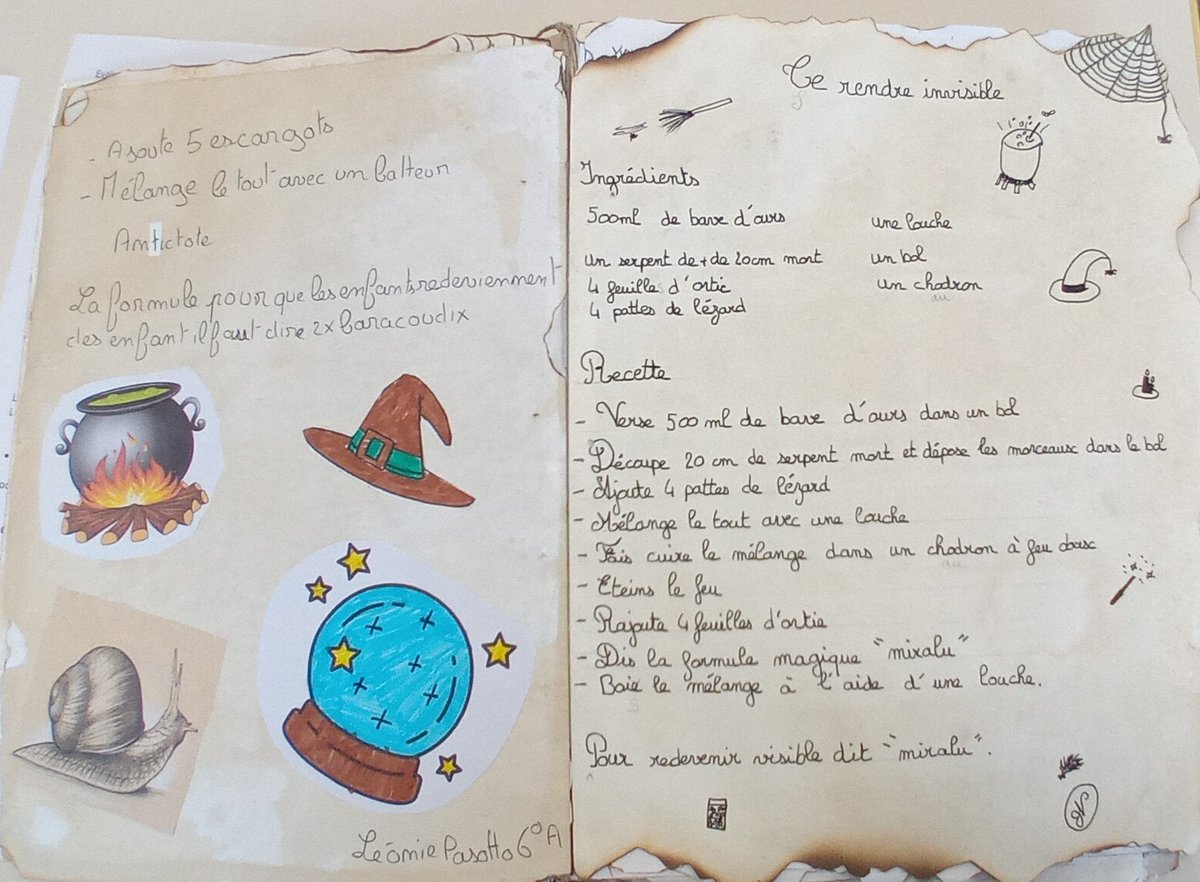 - Ajoute 5 escargots
- Mélange le tout avec un batteur
Antictote
La formule pour que les enfants redeviennent
des enfant il faut dire 2x baracoudix
Léonie Pasotto 6°A
Te rendre invisible
Ingrédients
500ml de bave d'ours
une louche
un serpent de + de 20cm mort
un bol
4 feuille d'ortie
un chodron
au
4 pattes de lézard
Recette
- Verse 500 ml de bave d'ours dans un bol
- Découpe 20 cm de serpent mort et dépose les morceaux dans le bol
- Ajoute 4 pattes de lézard
- Mélange le tout avec une louche
- Fais cuire le mélange dans un chodron à feu doux
au
- Eteins le feu
- Rajoute 4 feuilles d'ortie
- Dis la formule magique "mixalu"
- Boie le mélange à l'aide d'une louche.
Pour redevenir visible dit "miralu".